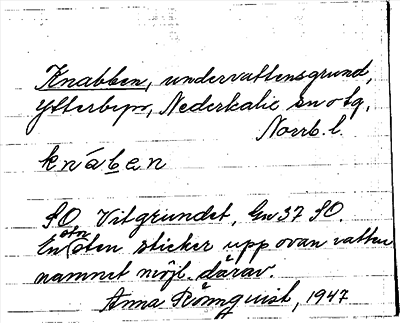 Knabben, undervattensgrund,
Ytterbyn, Nederkalix sn o tg,
Norrb. l.
knáben
SO Vitgrundet, Gn 37 SO.
En sten sticker upp ovan vatten
namnet möjl. därav.
Anna Rönnquist, 1947